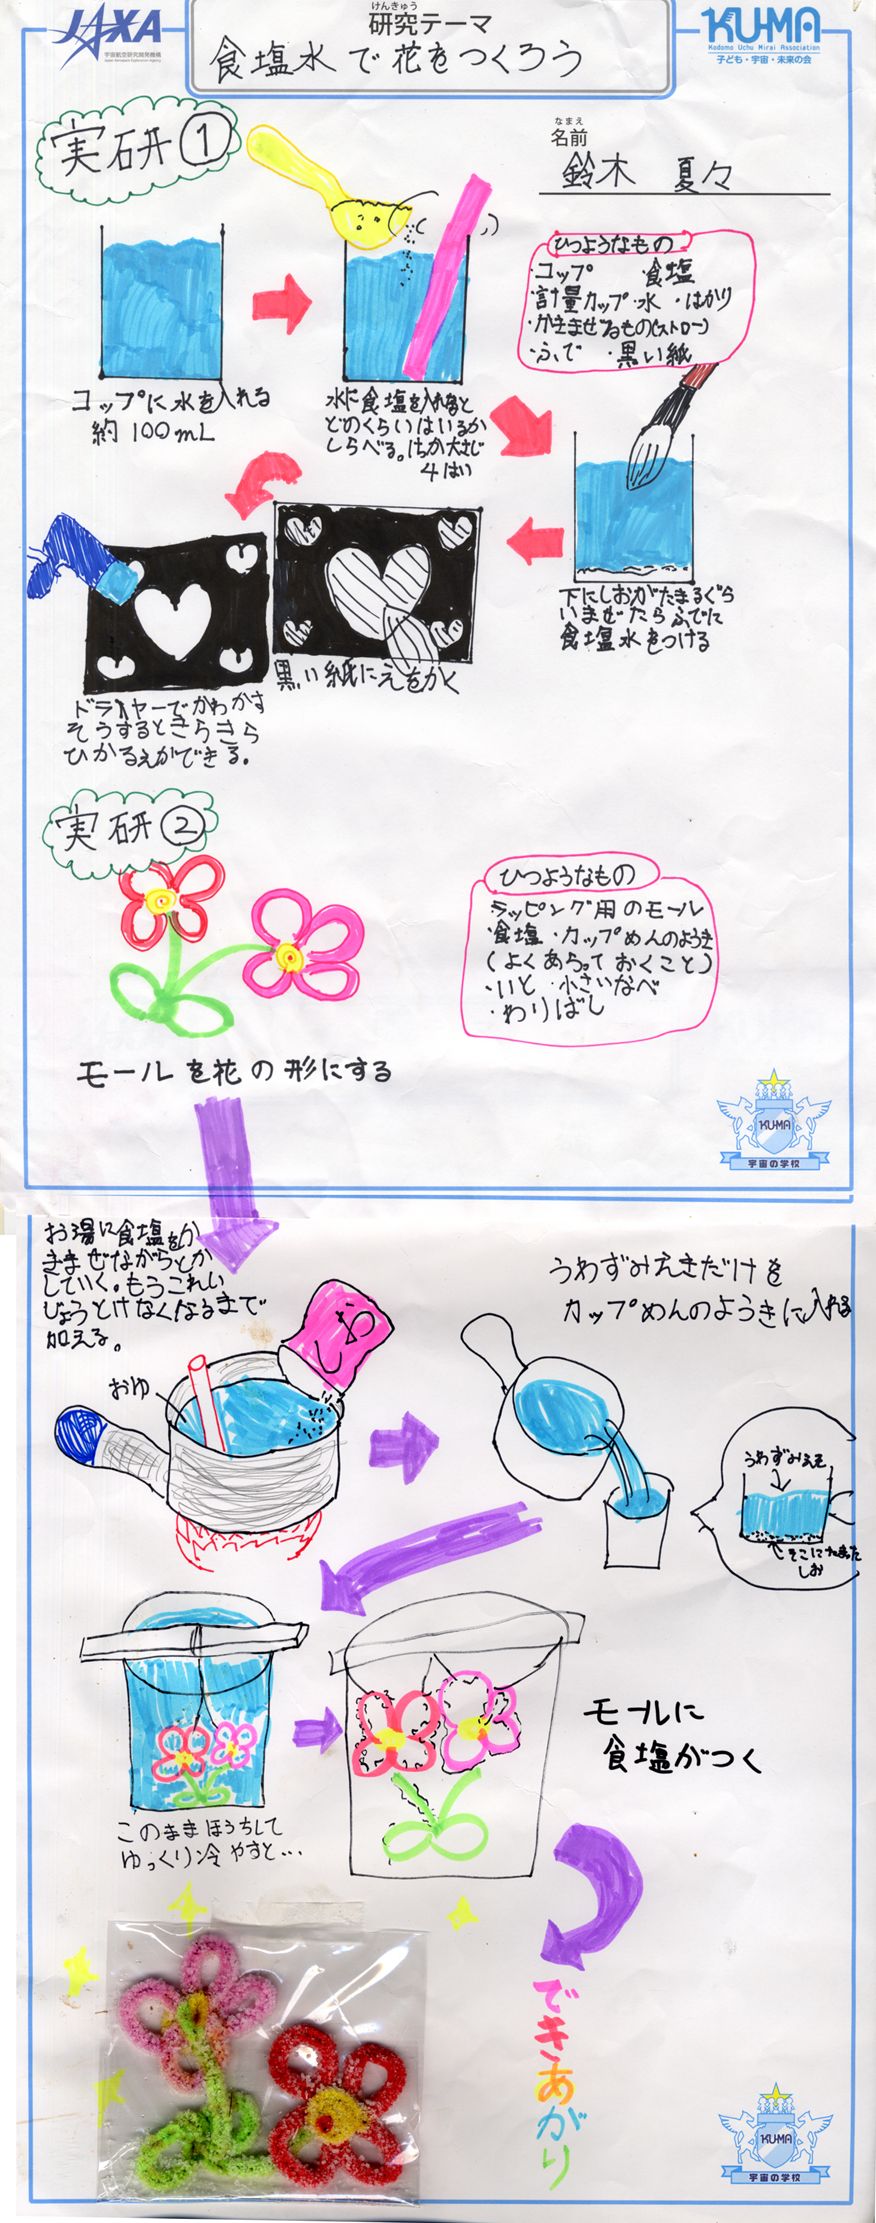 JAXA
宇宙航空研究開発機構
Japan Aerospace Exploration Agency
けんきゅう
研究テーマ
食塩水で花をつくろう
KU-MA
Kodomo Uchu Mirai Association
子ども・宇宙・未来の会
実研①
なまえ
名前
鈴木 夏々
ひつようなもの
・コップ ・食塩
・計量カップ・水 ・はかり
・かきまぜるもの(ストロー)
・ふで ・黒い紙
コップに水を入れる
約100mL
水に食塩を入れると
どのくらいはいるか
しらべる。
4はい
下にしおがたまるぐら
いまぜたらふでに
食塩水をつける
黒い紙にえをかく
ドライヤーでかわかす
そうするときらきら
ひかるえができる。
実研②
ひつようなもの
・ラッピング用のモール
・食塩・カップめんのようき
(よくあらっておくこと)
・いと ・小さいなべ
・わりばし
モールを花の形にする
KU-MA
宇宙の学校
お湯に食塩をか
きまぜながらとか
していく。もうこれい
じょうとけなくなるまで
加える。
うわずみえきだけを
カップめんのようきに入れる
しお
おゆ
うわずみえき
そこにたまった
しお
モールに
食塩がつく
このままほうちして
ゆっくり冷やすと…
できあがり
KU-MA
宇宙の学校